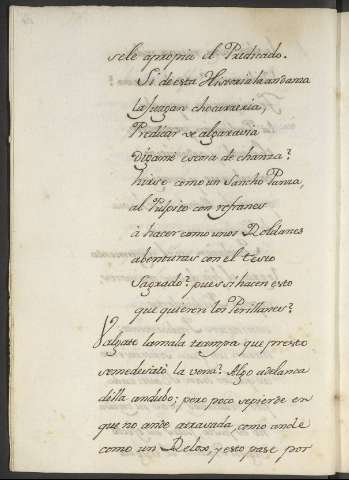 sele apropia el Predicado.
Si de esta Historia la andama
la juzgan chocarreria,
Predicar ve algaravia
digame es cosa de chanza?
hirse, como un Sancho Panza,
al Pulpito con refranes
à hacer como unos Roldanes
abenturas con el texto
Sagrado? pues si hacen esto
que quieren los Perillanes?
Valgate la mala trampa que presto
se me desató la vena? Algo adelanta
dilla andubo; pero poco se pierde en
que no ande atrasada, como ande
como un Relox, y esto pase por